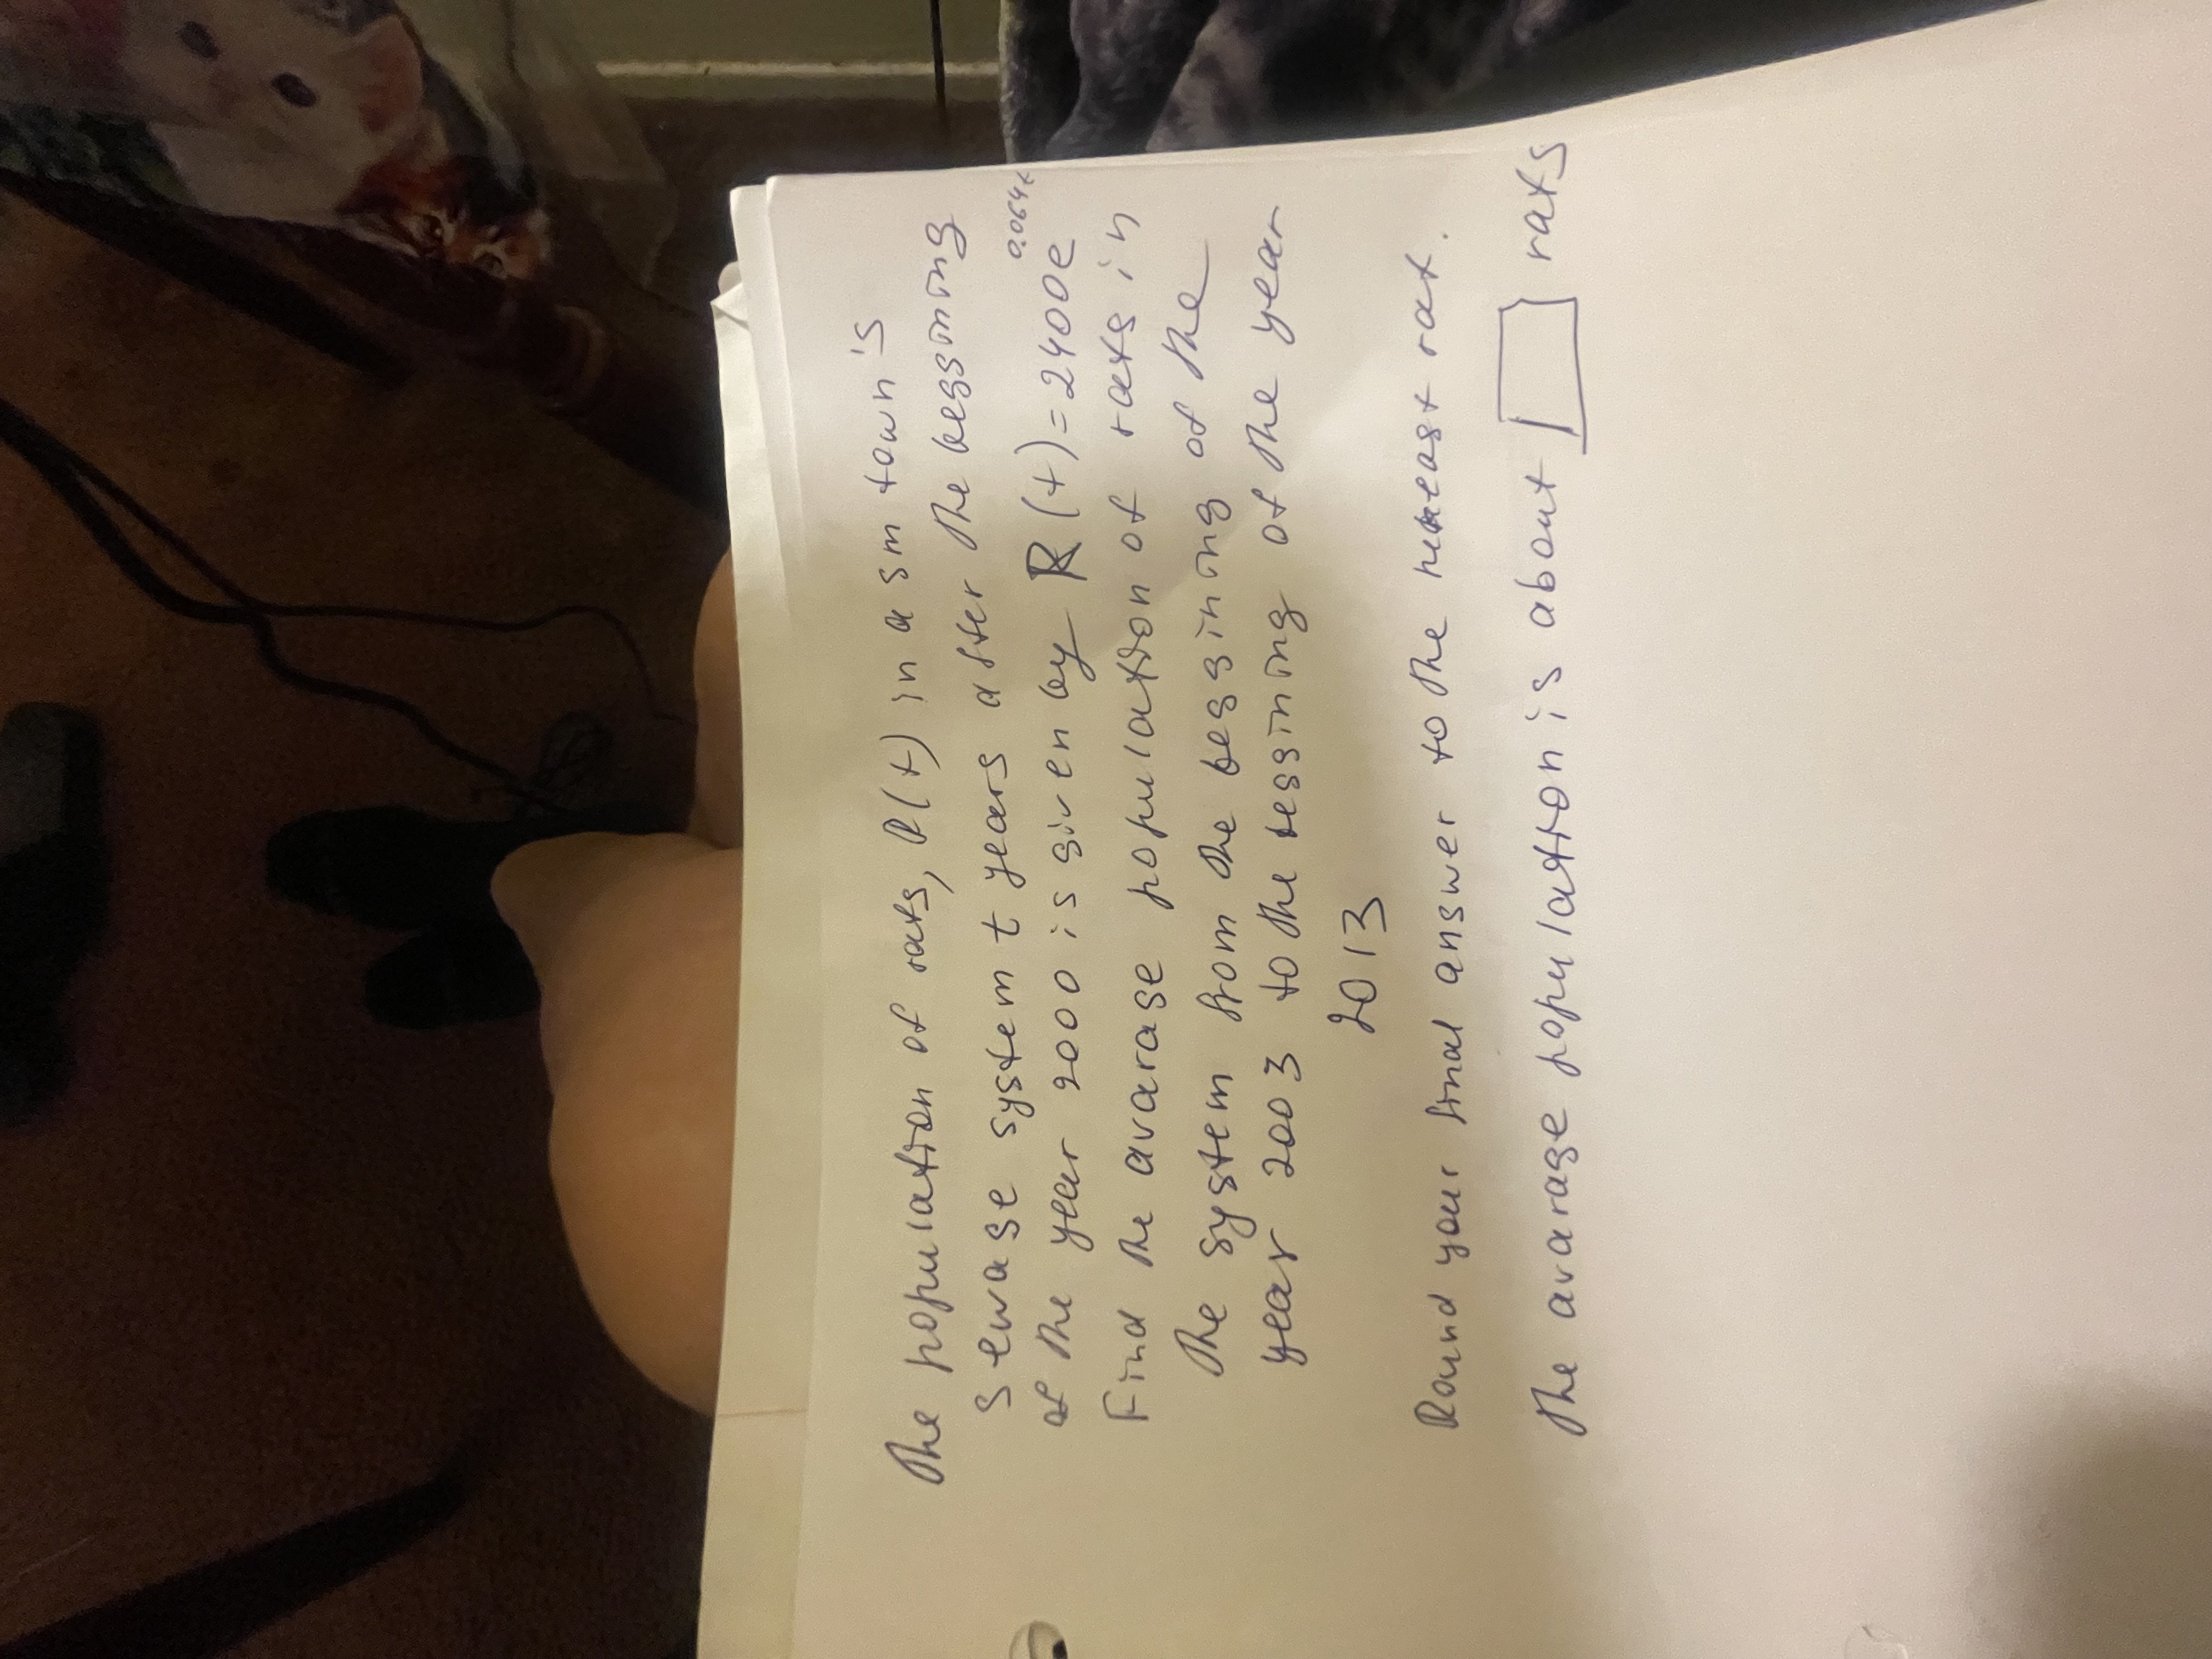 The population of rats, R(t) in a sm town's
sewage system t years after the beggining
of the year 2000 is given by R(t)=2400e^0.064t
Find the avarage population of rats in
the system from the beggining of the
year 2003 to the beggining of the year
2013
Round your final answer to the nearest rat.
The avarage population is about [ ] rats